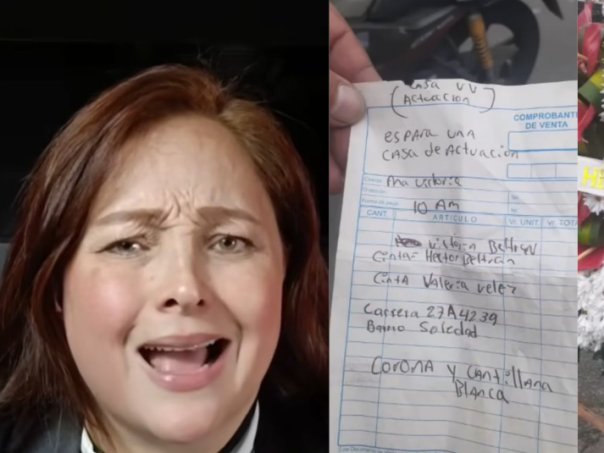 (CASA VV
Actuacion)
COMPROBANTE
DE VENTA
es PARA UNA
CASA de Actuacion
Ana victoria
10 AM
CANT.
ARTICULO
Vr. UNIT.
Vr. TOTA
Victoria Beltran
Cinta: Hector Beltrán
Cinta Valeria velez
Carrera 27A 4239
Barrio Soledad
CORONA y CANTILLANA
BLANCA